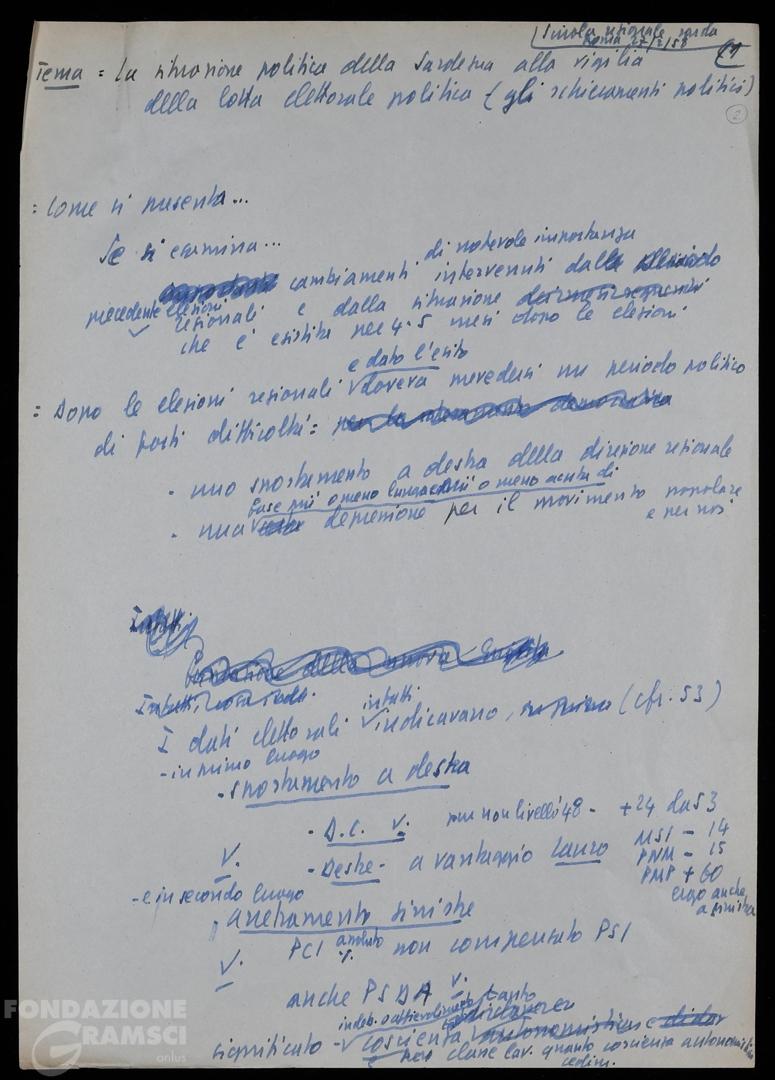 Scuola regionale sarda
Roma 27/2/58
Tema = La situazione politica della Sardegna alla vigilia
della lotta elettorale politica (gli schieramenti politici)
2
= Come si presenta...
Se si esamina...
di notevole importanza
cambiamenti intervenuti dalle
precedente elezioni
regionali e dalla situazione
che è esistita per 4-5 mesi dopo le elezioni
e dato l'esito
= Dopo le elezioni regionali doveva prevedersi un periodo politico
di forti difficoltà = per la democratica
- uno spostamento a destra della direzione regionale
fase più o meno lunga e più o meno acuta di
- una depressione per il movimento popolare
e per noi
Infatti
della nuova
Infatti, cosa
infatti
I dati elettorali indicavano, (cfr. 53)
- in primo luogo
- spostamento a destra
- D.C. V. pur non livelli 48 - +24 da 53
V. - Destre - a vantaggio Lauro
MSI - 14
PNM - 15
PMP + 60
ergo anche
a sinistra
- e in secondo luogo
arretramento sinistre
V. PCI assoluto % non compensato PSI
anche PSDA V.
tanto
significato - coscienza autonomistica e di
per classe lav. quanto coscienza autonomistica
FONDAZIONE
GRAMSCI
onlus